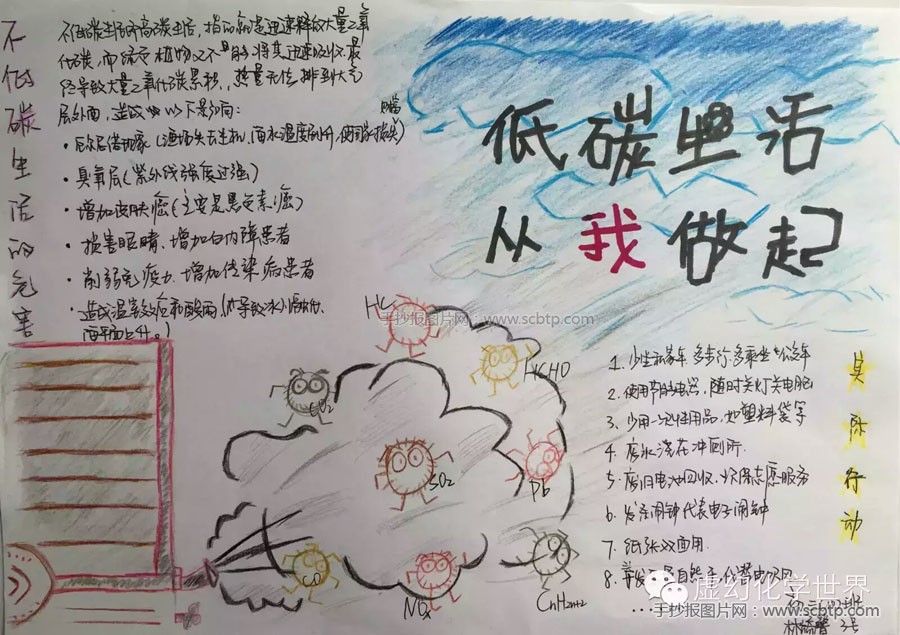 不低碳生活的危害
不低碳生活即高碳生活，指的就是迅速释放大量二氧
化碳，而绿色植物又不能将其迅速吸收，最
终导致大量二氧化碳累积，热量无法排到大气
层外面，造成以下影响：
• 厄尔尼诺现象
• 臭氧层（紫外线强度过强）
• 增加皮肤癌（主要是黑色素癌）
• 损害眼睛、增加白内障患者
• 削弱免疫力、增加传染病患者
• 造成温室效应和酸雨
海平面上升。）
低碳生活
从我做起
HC
HCHO
CO2
SO2
Pb
CO
NOx
CnH2n+2
手抄报图片网：www.scbtp.com
实际行动
1. 少坐私家车 多步行、多乘坐公交车
2. 使用节能电器，随时关灯关电脑
3. 少用一次性用品，如塑料袋等
4. 废水浇花冲厕所.
5. 废旧电池回收，环保志愿服务
6. 发条闹钟代表电子闹钟
7. 纸张双面用.
8.
虚幻化学世界
手抄报图片网：www.scbtp.com
3号